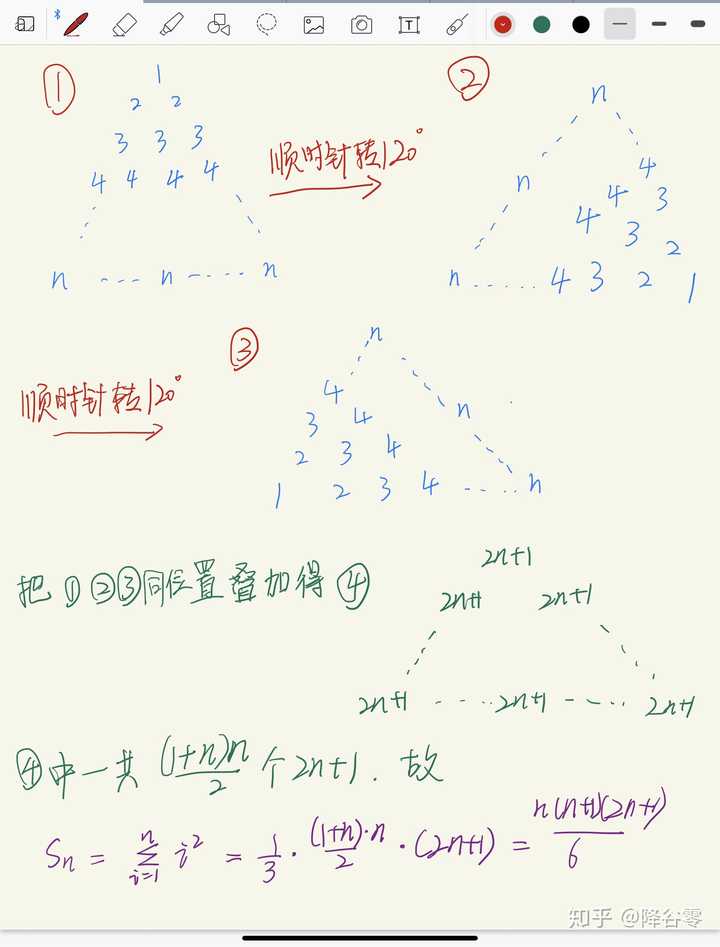 ①
1
2 2
3 3 3
4 4 4 4
n ---- n ----- n
顺时针转120°
②
n
n 4
4 3
4 3 2
n ...... 4 3 2 1
顺时针转120°
③
n
4
3 4 n
2 3 4
1 2 3 4 ------ n
把①②③同位置叠加得④
2n+1
2n+1 2n+1
2n+1 ----- 2n+1 ----- 2n+1
④中一共 (1+n)n/2 个2n+1. 故
Sn = ∑_{i=1}^{n} i² = 1/3 · (1+n)·n/2 · (2n+1) = n(n+1)(2n+1)/6
知乎 @降谷零